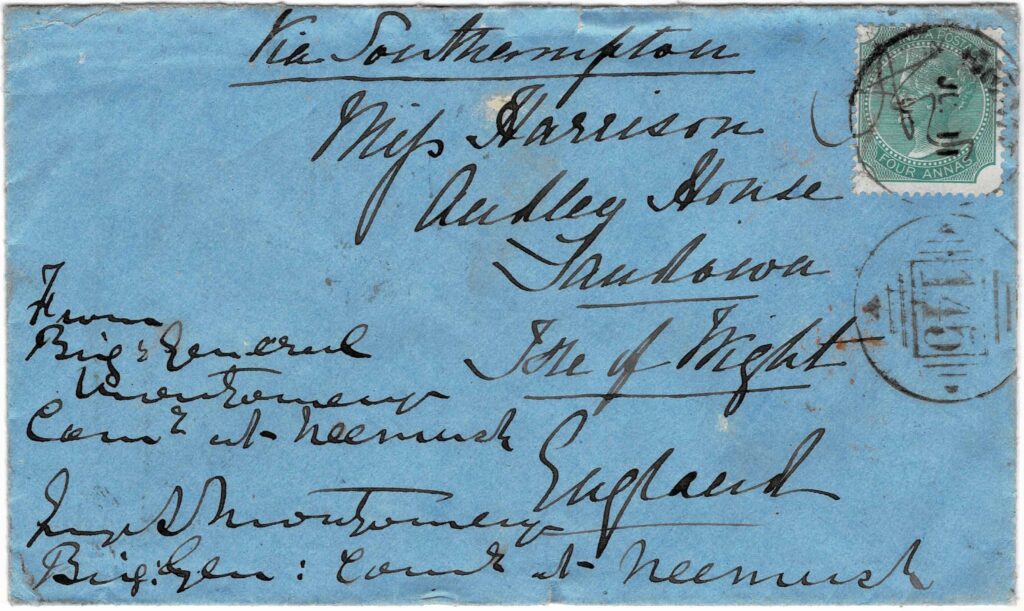 Via Southampton
Miss Harrison
Audley House
Sandown
Isle of Wight
England
From
Brig: General
Montgomery
Com^g at Neemuch
Montgomery
Brig: Gen: Com^g at Neemuch
FOUR ANNAS
JU
145